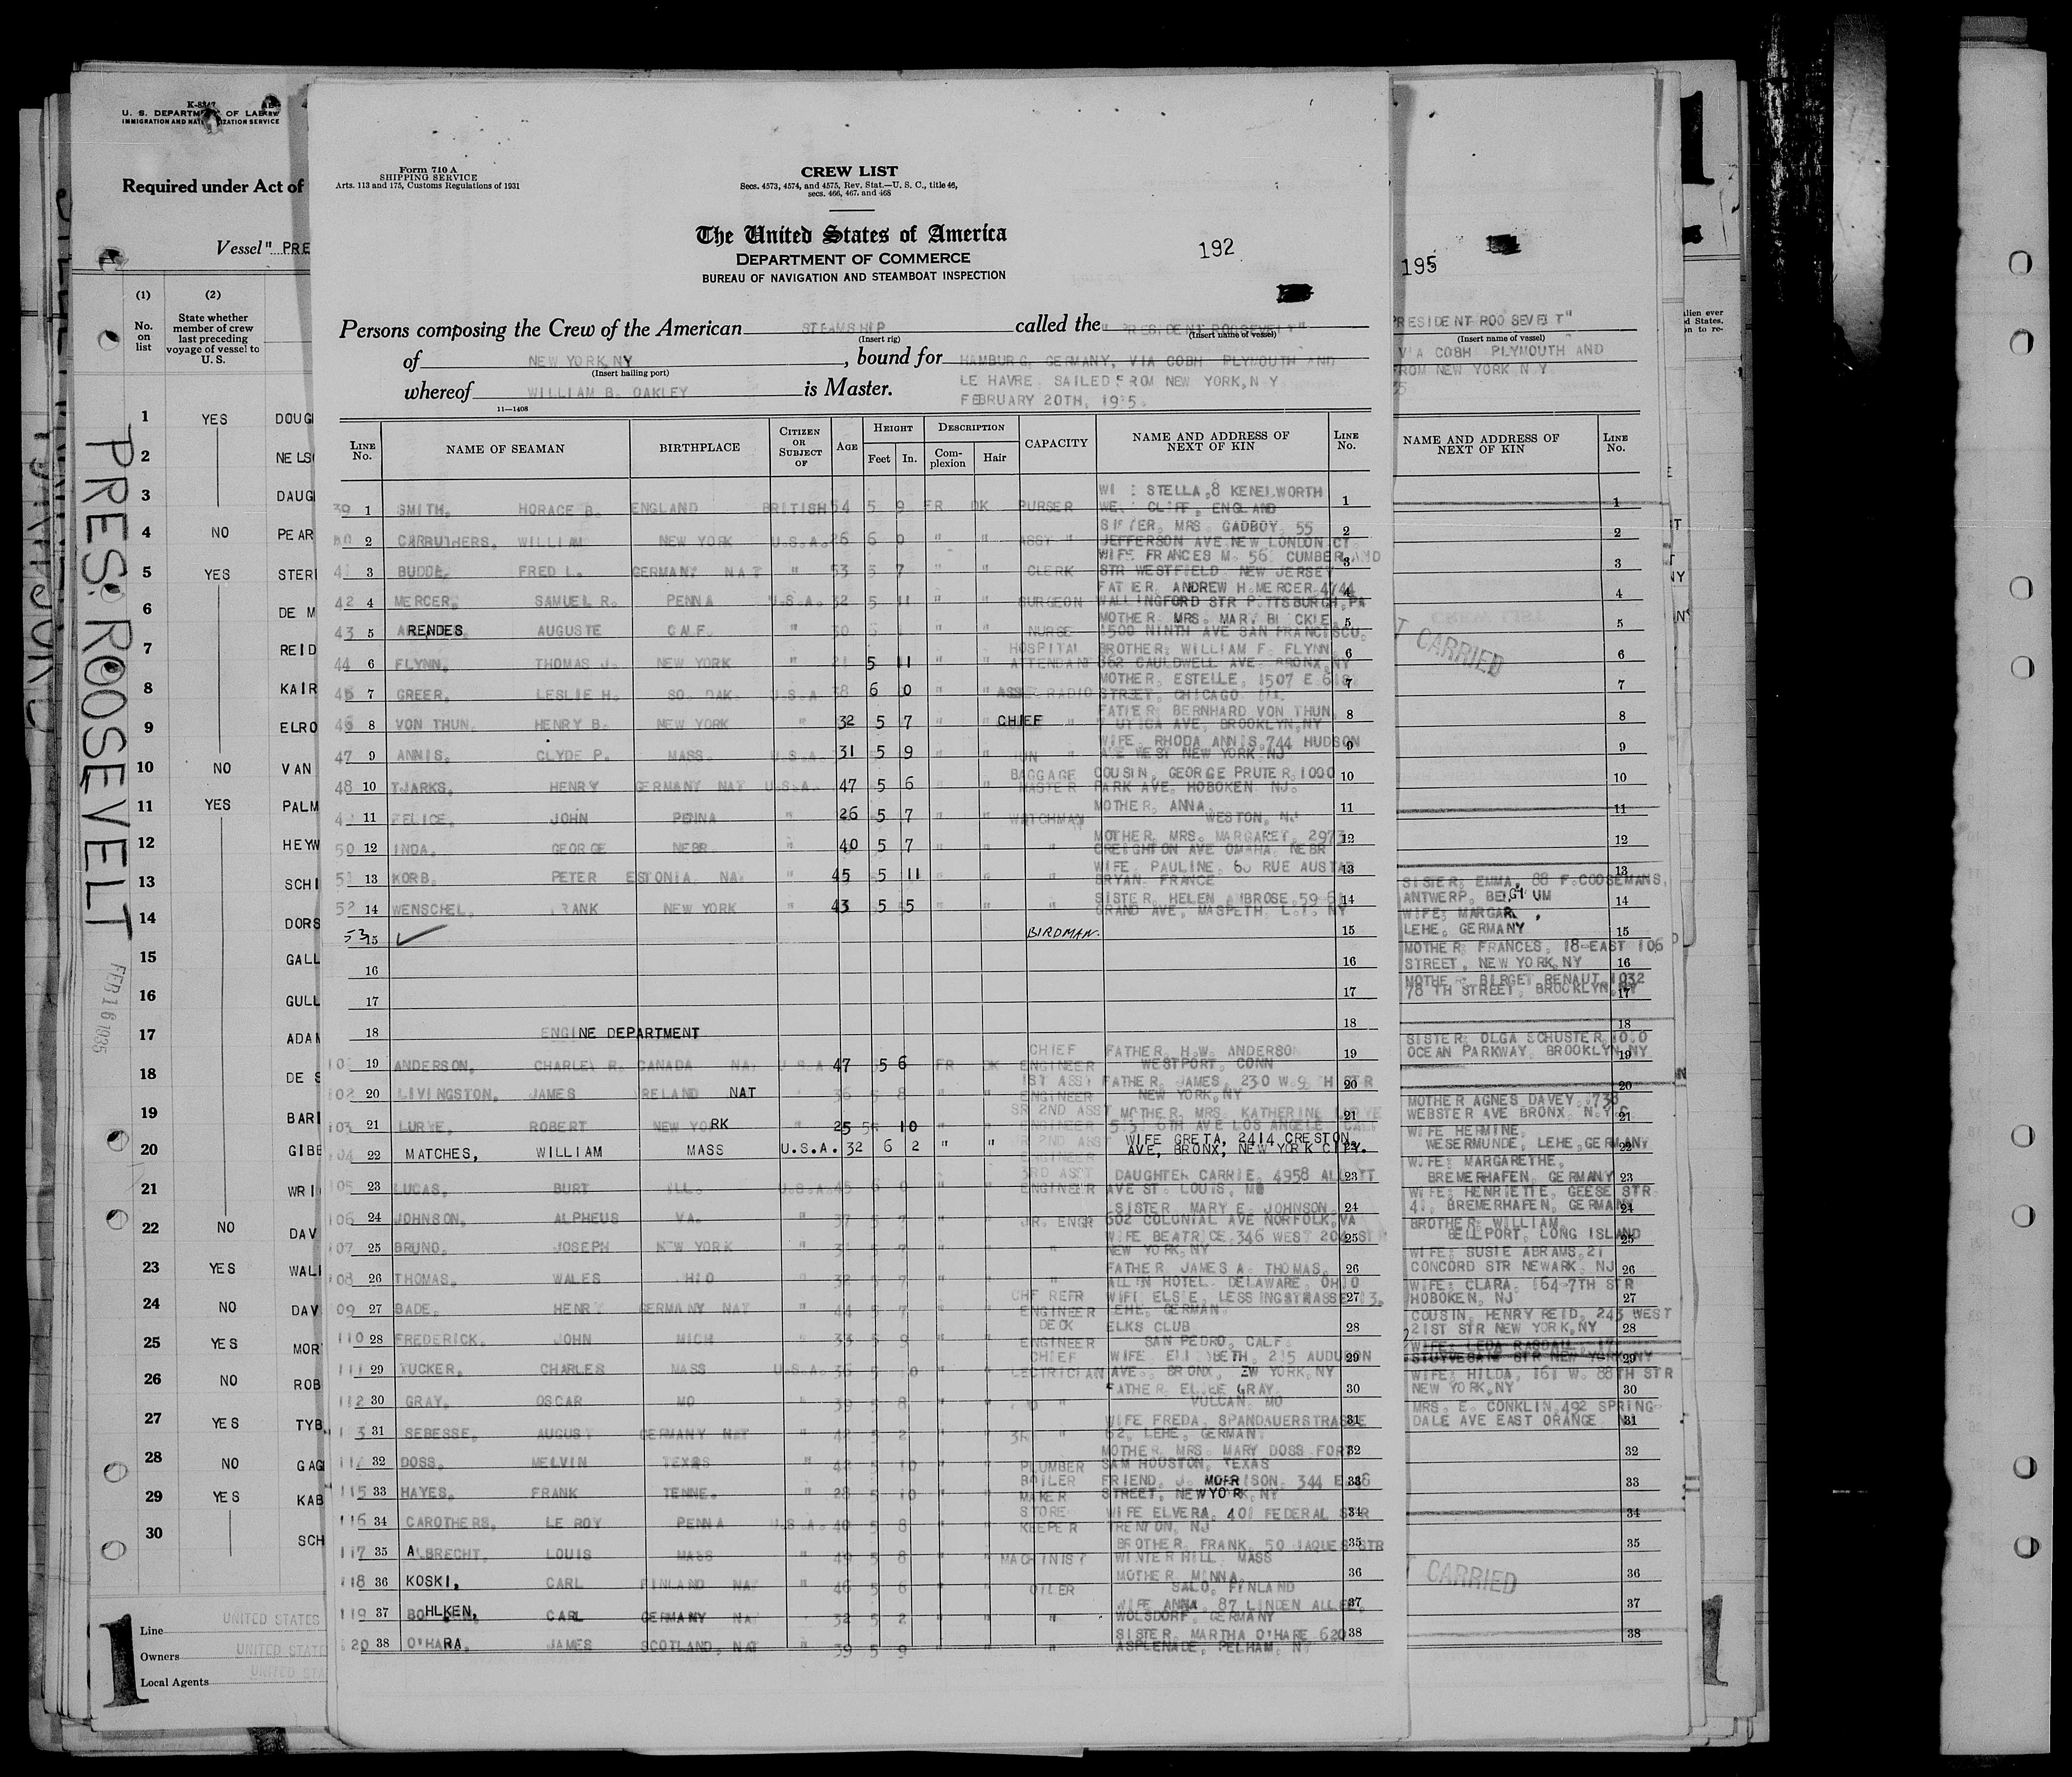 K-8347
U. S. DEPARTM OF LABOR
IMMIGRATION AND NAT IZATION SERVICE
Required under Act of
Vessel " PRE
(1) (2)
No. on list
State whether member of crew last preceding voyage of vessel to U. S.
1 YES DOUG
2 NELS
3 DAUG
4 NO PEAR
5 YES STER
6 DE M
7 REID
8 KAIR
9 ELRO
10 NO VAN
11 YES PALM
12 HEYW
13 SCHI
14 DORS
15 GALL
16 GULL
17 ADAM
18 DE S
19 BARI
20 GIBB
21 WRI
22 NO DAV
23 YES WAL
24 NO DAV
25 YES MOR
26 NO ROB
27 YES TYB
28 NO GAG
29 YES KAB
30 SCH
Line UNITED STATES
Owners UNITED STATE
Local Agents UNITED STA
1
PRES. ROOSEVELT
FEB 16 1935
Form 710 A
SHIPPING SERVICE
Arts. 113 and 175, Customs Regulations of 1931
CREW LIST
Secs. 4573, 4574, and 4575, Rev. Stat.—U. S. C., title 46,
secs. 466, 467, and 468
The United States of America
DEPARTMENT OF COMMERCE
BUREAU OF NAVIGATION AND STEAMBOAT INSPECTION
192
Persons composing the Crew of the American STEAMSHIP called the "PRESIDENT ROOSEVELT"
(Insert rig) (Insert name of vessel)
of NEW YORK, NY, bound for HAMBURG, GERMANY, VIA COBH PLYMOUTH AND
(Insert hailing port)
LE HAVRE SAILED FROM NEW YORK, N Y
whereof WILLIAM B. OAKLEY is Master.
FEBRUARY 20TH, 1935.
11—1408
LINE No. NAME OF SEAMAN BIRTHPLACE CITIZEN OR SUBJECT OF AGE HEIGHT Feet In. DESCRIPTION Complexion Hair CAPACITY NAME AND ADDRESS OF NEXT OF KIN LINE No.
39 1 SMITH, HORACE B. ENGLAND BRITISH 54 5 9 FR DK PURSER STELLA, 8 KENELWORTH CLIFF, ENGLAND 1
2 CARRUTHERS, WILLIAM NEW YORK U.S.A. 26 6 0 " " ASST " SISTER, MRS. GADBOY, 55 JEFFERSON AVE NEW LONDON CT 2
41 3 BUDDE, FRED L. GERMANY NAT " 53 5 7 " " CLERK WIFE FRANCES M. 56 CUMBERLAND STR WESTFIELD NEW JERSEY 3
42 4 MERCER, SAMUEL R. PENNA U.S.A. 32 5 11 " " SURGEON FATHER, ANDREW H. MERCER 4744 WALLINGFORD STR PITTSBURGH, PA 4
43 5 RENDES AUGUSTE CALF. " 30 " " NURSE MOTHER MRS. MARY 1500 NINTH AVE SAN FRANCISCO. 5
44 6 FLYNN, THOMAS J. NEW YORK " 21 5 11 " " HOSPITAL ATTENDANT BROTHER, WILLIAM F. FLYNN 862 CAULDWELL AVE. BRONX, NY 6
45 7 GREER, LESLIE H. SO. DAK. U.S.A 38 6 0 " " ASST. RADIO MOTHER, ESTELLE, 1507 E 61S STREET, CHICAGO ILL. 7
46 8 VON THUN, HENRY B. NEW YORK " 32 5 7 " " CHIEF " FATHER BERNHARD VON THUN UTICA AVE, BROOKLYN, NY 8
47 9 ANNIS, CLYDE P. MASS. U.S.A. 31 5 9 " " JUN " WIFE RHODA ANNIS, 744 HUDSON AVE WEST NEW YORK, NJ 9
48 10 TJARKS, HENRY GERMANY NAT U.S.A. 47 5 6 " " BAGGAGE MASTER COUSIN, GEORGE PRUTER, 1000 PARK AVE, HOBOKEN. NJ. 10
11 FELICE, JOHN PENNA " 26 5 7 " " WATCHMAN MOTHER, ANNA WESTON, NJ 11
50 12 INDA, GEORGE NEBR. " 40 5 7 " " " MOTHER, MRS. MARGARET, 2973 CREIGHTON AVE OMAHA NEBR 12
51 13 KORB, PETER ESTONIA NA. 45 5 11 " " " WIFE PAULINE RUE BRYAN FRANCE 13
52 14 WENSCHEL, FRANK NEW YORK 43 5 5 " " " SISTER, HELEN AMBROSE, 59 GRAND AVE, MASPETH L.I. NY 14
53 15 ✓ BIRDMAN. 15
16 16
17 17
18 ENGINE DEPARTMENT 18
19 ANDERSON, CHARLEY R. CANADA NA. U.S.A 47 5 6 FR DK CHIEF ENGINEER FATHER, H.W. ANDERSON WESTPORT, CONN 19
102 20 LIVINGSTON, JAMES IRELAND NAT " 36 5 8 " " 1ST ASST ENGINEER FATHER, JAMES, 230 W. TH STR NEW YORK, NY 20
103 21 LURYE, ROBERT NEW YORK " 25 5 10 " " SR 2ND ASST ENGINEER MOTHER, MRS. KATHERINE LURYE 6TH AVE LOS ANGELE CALF 21
104 22 MATCHES, WILLIAM MASS U.S.A. 32 6 2 " " JR 2ND ASST ENGINEER WIFE GRETA, 2414 CRESTON AVE, BRONX, NEW YORK CITY. 22
105 23 LUCAS, BURT ILL. U.S.A. 45 6 0 " " 3RD ASST ENGINEER DAUGHTER CARRIE, 4958 AVE ST. LOUIS, MO 23
106 24 JOHNSON, ALPHEUS VA. " 37 5 7 " " JR. ENGR SISTER MARY E. JOHNSON 602 COLONIAL AVE NORFOLK, VA 24
107 25 BRUNO, JOSEPH NEW YORK " 31 5 7 " " " WIFE BEATRICE, 346 WEST 204 STR NEW YORK, NY 25
108 26 THOMAS, WALES OHIO " 32 5 7 " " " FATHER JAMES A. THOMAS, ALLEN HOTEL. DELAWARE, OHIO 26
109 27 BADE, HENRY GERMANY NAT " 44 5 7 " " CHF REFR ENGINEER WIFE ELSIE, LESSINGSTRASSE 13. LEHE, GERMAN. 27
110 28 FREDERICK, JOHN MICH " 33 5 9 " " DECK ENGINEER ELKS CLUB SAN PEDRO, CALF. 28
111 29 TUCKER, CHARLES MASS U.S.A. 36 5 10 " " CHIEF LECTRICIAN WIFE ELIZABETH, 215 AUDUBON AVE., BRONX, NEW YORK, NY 29
112 30 GRAY, OSCAR MO " 39 5 8 " " " FATHER, GRAY. VULCAN. MO 30
113 31 SEBESSE, AUGUST GERMANY NAT " 42 5 2 " " 3R " WIFE FREDA, SPANDAUERSTRASSE 62, LEHE, GERMAN. 31
114 32 DOSS, MELVIN TEXAS " 48 5 10 " " PLUMBER MOTHER, MRS. MARY DOSS FORT SAM HOUSTON, TEXAS 32
115 33 HAYES, FRANK TENNE. " 28 5 10 " " BOILER MAKER FRIEND, J. MORRISON. 344 E. STREET, NEW YORK, NY 33
116 34 CAROTHERS, LE ROY PENNA U.S.A. 40 5 8 " " STORE KEEPER WIFE ELVERA, 401 FEDERAL STR TRENTON, NJ 34
117 35 ALBRECHT, LOUIS MASS " 49 5 8 " " MACHINIST BROTHER, FRANK, 50 JAQUES STR WINTER HILL MASS 35
118 36 KOSKI, CARL FINLAND NAT " 46 5 6 " " OILER MOTHER, MINNA, SALO, FINLAND 36
119 37 BOHLKEN, CARL GERMANY NA " 32 5 2 " " " WIFE ANNA, 87 LINDEN ALLEE, WOLSDORF, GERMANY 37
120 38 O'HARA, JAMES SCOTLAND, NAT " 39 5 9 " " " SISTER, MARTHA O'HARE 620 ESPLENADE, PELHAM, NY 38
195
PRESIDENT ROOSEVELT"
(Insert name of vessel)
VIA COBH PLYMOUTH AND
FROM NEW YORK N Y
NAME AND ADDRESS OF NEXT OF KIN LINE No.
1
2
3
4
5
T CARRIED
6
7
8
9
10
11
12
13
SISTER: EMMA, 88 F. COOSEMANS,
ANTWERP, BELGIUM 14
WIFE: MARGAR ,
LEHE, GERMANY 15
MOTHER: FRANCES, 18-EAST 106
STREET, NEW YORK, NY 16
MOTHER: BIRGET RENAUT, 1032
78 TH STREET, BROOKLYN, NY 17
18
SISTER: OLGA SCHUSTER,
OCEAN PARKWAY, BROOKLYN, NY 19
20
MOTHER AGNES DAVEY,
WEBSTER AVE BRONX. N.Y. 21
WIFE HERMINE,
WESERMUNDE, LEHE, GERMANY 22
WIFE: MARGARETHE,
BREMERHAFEN, GERMANY 23
WIFE: HENRIETTE, GEESE STR
41, BREMERHAFEN, GERMANY 24
BROTHER: WILLIAM,
BELLPORT, LONG ISLAND 25
WIFE: SUSIE ABRAMS, 21
CONCORD STR NEWARK, NJ 26
WIFE: CLARA, 164-7TH STR
HOBOKEN, NJ 27
COUSIN, HENRY REID, 243 WEST
21ST STR NEW YORK, NY 28
WIFE: LEDA RASDALL,
STUYVESANT STR NEW YORK, NY 29
WIFE: HILDA, 161 W. 88TH STR
NEW YORK, NY 30
MRS. E. CONKLIN, 492 SPRING-
DALE AVE EAST ORANGE 31
32
33
34
35
CARRIED 36
37
38